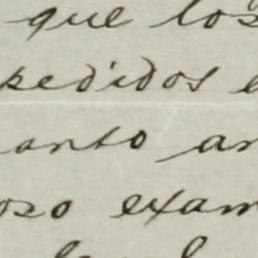 que los
pedidos
anto an
oso exam